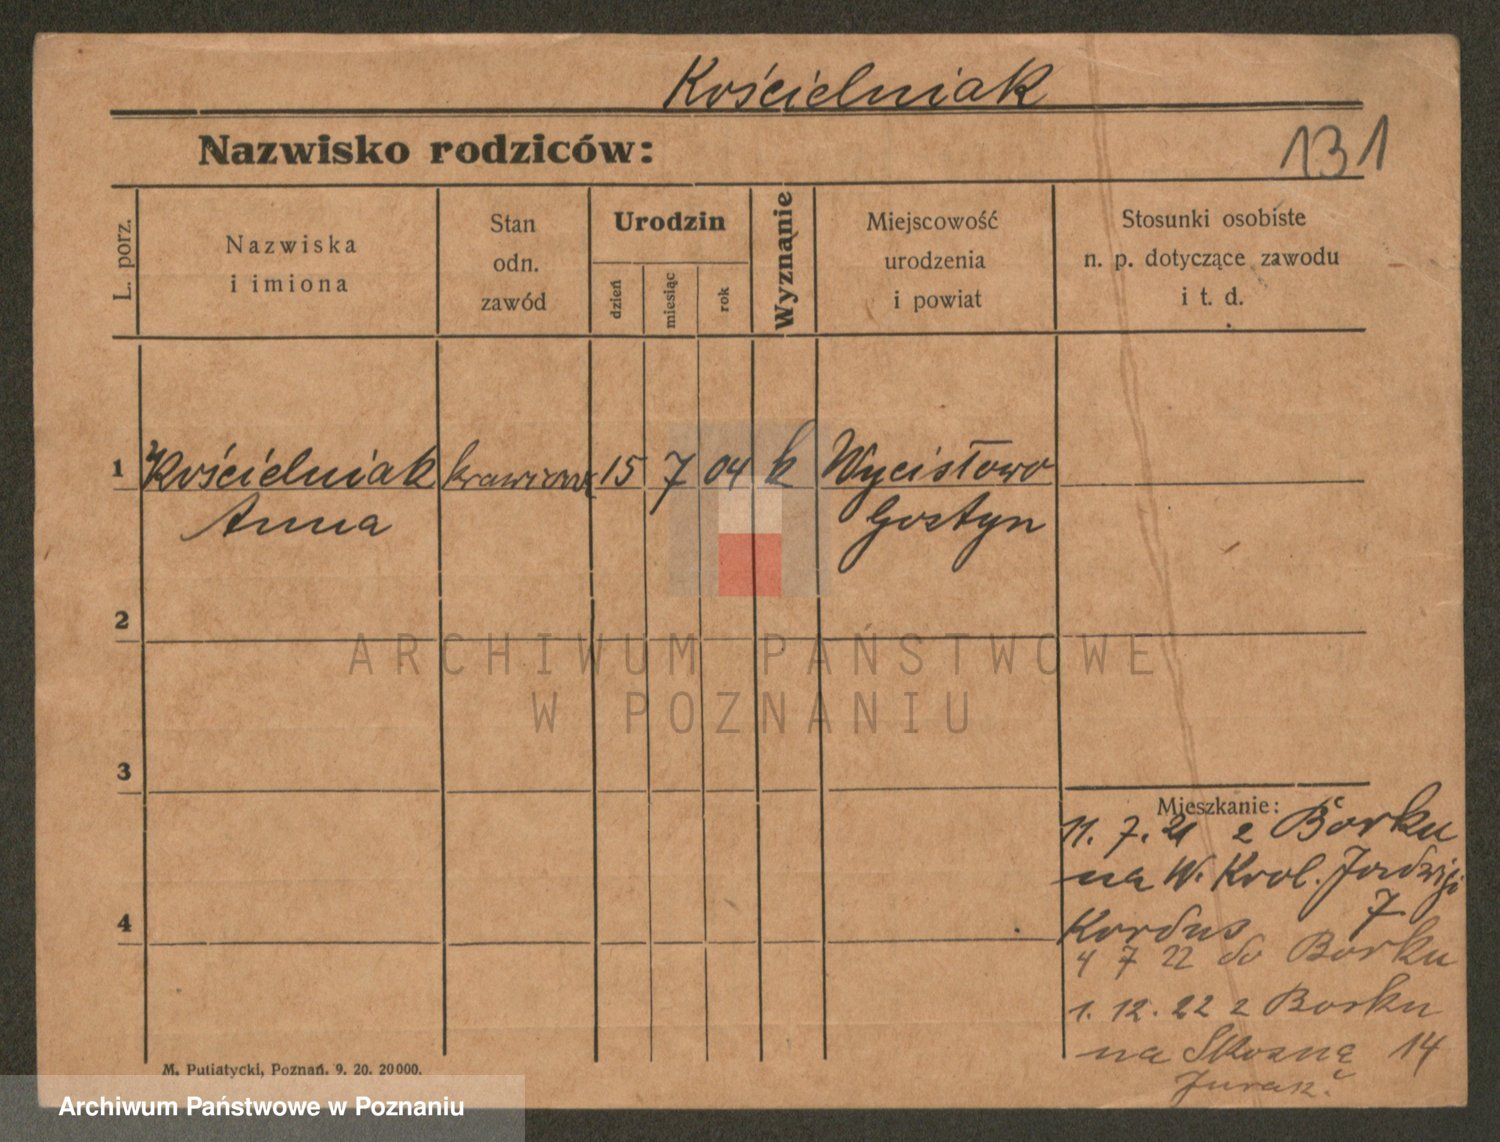 Kościelniak
Nazwisko rodziców:
131
L. porz.
Nazwiska
i imiona
Stan
odn.
zawód
Urodzin
dzień
miesiąc
rok
Wyznanie
Miejscowość
urodzenia
i powiat
Stosunki osobiste
n. p. dotyczące zawodu
i t. d.
1 Kościelniak krawcowa 15 7 04 k Wycisłowo
Anna Gostyn
2
3
4
Mieszkanie:
11. 7. 21 z Borku
na W. Krol. Jadwigi
7
Kordus
4 7 22 do Borku
1. 12. 22 z Borku
na Skośną 14
M. Putiatycki, Poznań. 9. 20. 20000.
ARCHIWUM PAŃSTWOWE
W POZNANIU
Archiwum Państwowe w Poznaniu